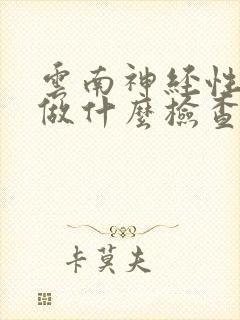 雲南神経性
做什麼檢查
卡莫夫